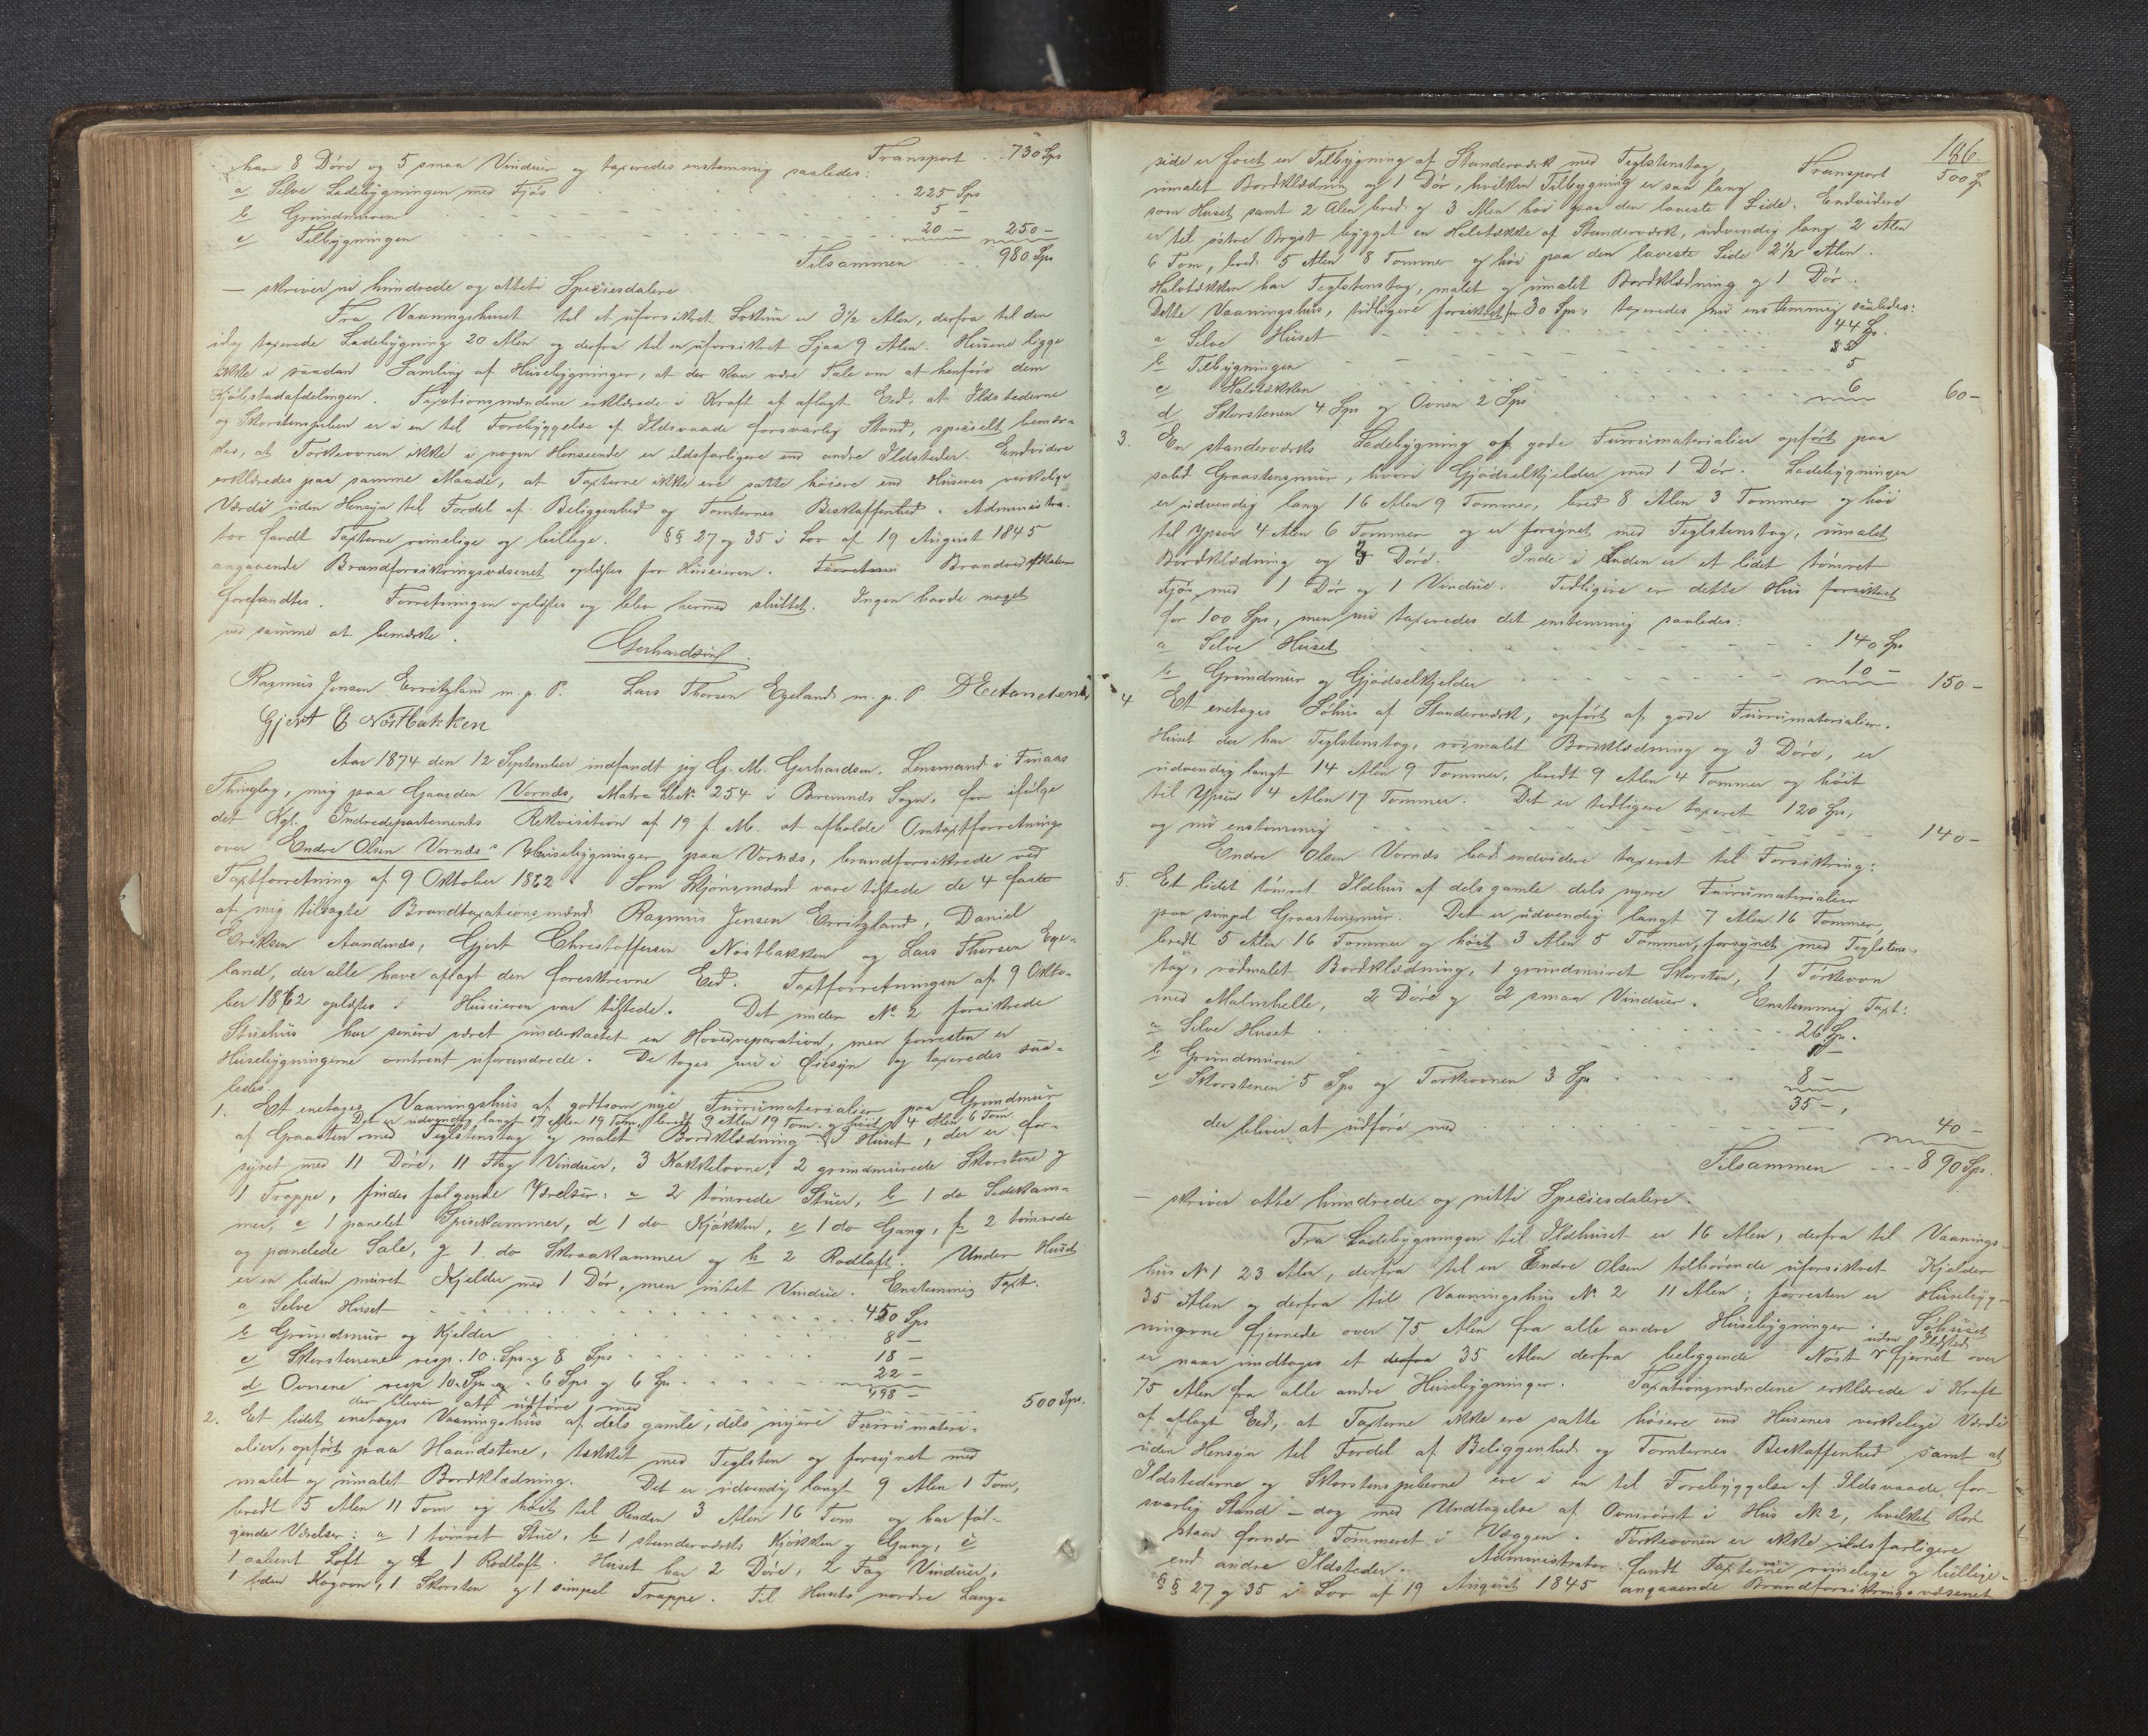 Transport . . 730 Sps
har 8 Döre og 5 smaa Vinduer og taxeredes enstemmig saaledes:
a Selve Ladebygningen med Fjös . . 225 Sps
b Grundmuren 5 —
c Tilbygningen 20 — 250 —
Tilsammen . . 980 Sps
— skriver ni hundrede og otteti Speciesdalere.
Fra Vaaningshuset til et uforsikret Lokum er 3 1/2 Alen, derfra til den
idag taxerede Ladebygning 20 Alen og derfra til en uforsikret Sjaa 9 Alen. Husene ligge
ikke i saadan Samling af Husebygninger, at der kan være Tale om at henføre dem
Kjöbstadafdelingen. Taxationsmændene erklærede i Kraft af aflagt Eed, at Ildstederne
og Skorstenspiben er i en til Forebyggelse af Ildsvaade forsvarlig Stand, specielt bemær-
kes, at Törkeovnen ikke i nogen Henseende er ildsfarligere end andre Ildsteder. Endvidere
erklæredes paa samme Maade, at Taxterne ikke ere satte höiere end Husenes virkelige
Værdi uden Hensyn til Fordel af Beliggenhed og Tomternes Beskaffenhed. Administra-
tor fandt Taxterne rimelige og billige. §§ 27 og 35 i Lov af 19 August 1845
angaaende Brandforsikringsvæsenet oplæstes for Huseieren. Brandredskaber
forefandtes. Forretningen oplæstes og blev hermed sluttet. Ingen havde noget
ved samme at bemærke.
Gerhardsen
Rasmus Jensen Erritzland m. p. P. Lars Thorsen Egeland m. p. P
Gjert C Nöstbakken
Aar 1874 den 12 September indfandt jeg G. M. Gerhardsen, Lensmand i Finaas
Thinglag, mig paa Gaarden Vornæs, Matr. No 254 i Bremnæs Sogn, for ifølge
det Kgl. Indredepartements Rekvisition af 19 f. M. at afholde Omtaxtforretning
over Endre Olsen Vornæs' Husebygninger paa Vornæs, brandforsikrede ved
Taxtforretning af 9 Oktober 1862. Som Skjönsmænd vare tilstede de 4 faste
af mig tilsagte Brandtaxationsmænd Rasmus Jensen Erritzland, Daniel
Eriksen Aandenæs, Gjert Christoffersen Nöstbakken og Lars Thorsen Ege-
land, der alle have aflagt den foreskrevne Eed. Taxtforretningen af 9 Okto-
ber 1862 oplæstes. Huseieren var tilstede. Det under No 2 forsikrede
Stuehus har senere været underkastet en Hovedreparation, men forresten er
Husebygningerne omtrent uforandrede. De toges nu i Øiesyn og taxeredes saa-
ledes:
1. Et enetages Vaaningshus af godtsom nye Furumaterialier paa Grundmur
Det er udvendig langt 17 Alen 19 Tom. bredt 9 Alen 19 Tom. og höit 4 Alen 6 Tom.
af Graasten med Teglstenstag og malet Bordklædning. I Huset, der er for-
synet med 11 Döre, 11 Fag Vinduer, 3 Kakkelovne, 2 grundmurede Skorstene og
1 Trappe, findes følgende Værelser: a 2 tömrede Stuer, b 1 do Sidekam-
mer, c 1 panelet Spisekammer, d 1 do Kjøkken, e 1 do Gang, f 2 tömrede
og panelede Sale, g 1 do Skraakammer og h 2 Rodloft. Under Huset
er en liden muret Kjelder med 1 Dör, men intet Vindue. Enstemmig Taxt:
a Selve Huset 450 Sps
b Grundmur og Kjelder 8 —
c Skorstenene resp. 10 Sps og 8 Sps 18 —
d Ovnene resp 10 Sps og 6 Sps og 6 Sps 22 —
498 —
der bliver at udføre med 500 Sps.
2. Et lidet enetages Vaaningshus af dels gamle, dels nyere Furumateri-
alier, opført paa Haandstene, tækket med Teglsten og forsynet med
malet og umalet Bordklædning. Det er udvendig langt 9 Alen 1 Tom,
bredt 5 Alen 11 Tom og höit til Renden 3 Alen 16 Tom og har föl-
gende Værelser: a 1 tömret Stue, b 1 standerværks Kjökken og Gang, c
1 aabent Loft og d 1 Rodloft. Huset har 2 Döre, 2 Fag Vinduer,
1 liden Kogeovn, 1 Skorsten og 1 simpel Trappe. Til Husets nordre Lang-
186.
Transport 500 Sp
side er föiet en Tilbygning af Standerværk med Teglstenstag,
umalet Bordklædning og 1 Dör, hvilken Tilbygning er saa lang
som Huset samt 2 Alen bred og 3 Alen höi paa den laveste Side. Endvidere
er til östre Bryst bygget en Halvtække af Standerværk, udvendig lang 2 Alen
6 Tom, bred 5 Alen 8 Tommer og höi paa den laveste Side 2 1/2 Alen.
Halvtækken har Teglstenstag, malet og umalet Bordklædning og 1 Dör.
Dette Vaaningshus, tidligere forsikret for 30 Sps, taxeredes nu enstemmig saaledes:
a Selve Huset 44 Sp.
b Tilbygningen 5
c Halvtækken 5
d Skorstenen 4 Sps og Ovnen 2 Sps 6 60 —
3. En standerværks Ladebygning af gode Furumaterialier opført paa
solid Graastensmur, hvori Gjödselkjelder med 1 Dör. Ladebygningen
er udvendig lang 16 Alen 9 Tommer, bred 8 Alen 3 Tommer og höi
til Ypsen 4 Alen 6 Tommer og er forsynet med Teglstenstag, umalet
Bordklædning og 3 Döre. Inde i Laden er et lidet tömret
Fjös med 1 Dör og 1 Vindue. Tidligere er dette Hus forsikret
for 100 Sps, men nu taxeredes det enstemmig saaledes:
a Selve Huset 140 Sps
b Grundmur og Gjödselkjelder 10 — 150 —
4 Et enetages Söhus af Standerværk, opfört af gode Furumaterialier.
Huset der har Teglstenstag, rödmalet Bordklædning og 3 Döre, er
udvendig langt 14 Alen 9 Tommer, bredt 9 Alen 4 Tommer og höit
til Ypsen 4 Alen 17 Tommer. Det er tidligere taxeret 120 Sps,
og nu enstemmig 140 —
Endre Olsen Vornæs lod endvidere taxeret til Forsikring:
5. Et lidet tömret Ildhus af dels gamle dels nyere Furumaterialier
paa simpel Graastensmur. Det er udvendig langt 7 Alen 16 Tommer,
bredt 5 Alen 16 Tommer og höit 3 Alen 5 Tommer, forsynet med Teglstens-
tag, rödmalet Bordklædning, 1 grundmuret Skorsten, 1 Törkeovn
med Malmhelle, 2 Döre og 2 smaa Vinduer. Enstemmig Taxt:
a Selve Huset 26 Sp.
b Grundmuren 1 —
c Skorstenen 5 Sps og Törkeovnen 3 Sps 8 —
35 —,
der bliver at udføre med 40 —
Tilsammen - - - 890 Sps.
— skriver otte hundrede og nitti Speciesdalere.
Fra Ladebygningen til Ildhuset er 16 Alen, derfra til Vaanings-
hus No 1 23 Alen, derfra til en Endre Olsen tilhörende uforsikret Kjelder
35 Alen og derfra til Vaaningshus No 2 11 Alen; forresten er Husebyg-
ningerne fjernede over 75 Alen fra alle andre Husebygninger. Söhuset
uden Ildsted
er naar undtages et derfra 35 Alen derfra beliggende Nöst fjernet over
75 Alen fra alle andre Husebygninger. Taxationsmændene erklærede i Kraft
af aflagt Eed, at Taxterne ikke ere satte höiere end Husenes virkelige Værdi
uden Hensyn til Fordel af Beliggenhed og Tomternes Beskaffenhed samt at
Ildstederne og Skorstenspiberne ere i en til Forebyggelse af Ildsvaade for-
svarlig Stand — dog med Undtagelse af Ovnsröret i Hus No 2, hvilket Rör
staar for nær Tömmeret i Væggen. Törkeovnen er ikke ildsfarligere
end andre Ildsteder. Administrator fandt Taxterne rimelige og billige.
§§ 27 og 35 i Lov af 19 August 1845 angaaende Brandforsikringsvæsenet